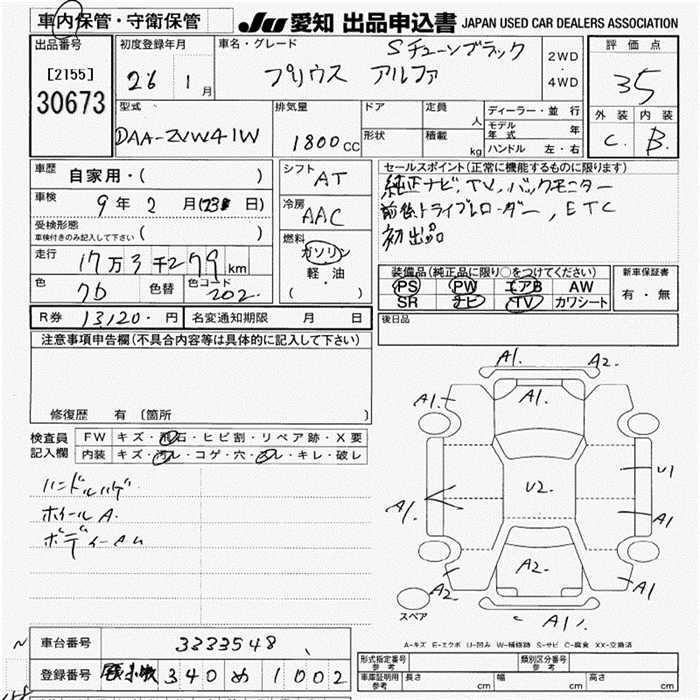 車内保管・守衛保管
JU 愛知 出品申込書 JAPAN USED CAR DEALERS ASSOCIATION
出品番号
[2155]
30673
初度登録年月
26 1月
車名・グレード
Sチューンブラック
プリウス アルファ
2WD
・
4WD
評価点
35
外装 内装
C. B.
型式
DAA-ZVW41W
排気量
1800cc
ドア
形状
定員 人
積載 kg
ディーラー・並行
モデル年式 年
ハンドル 左・右
車歴
自家用・( )
車検
9年2月( 日)
受検形態
車検付きのみ記入して下さい ( )
走行
17万3千279km
色 色替 色コード
202.
シフト
AT
冷房
AAC
燃料
ガソリン
軽・油
( )
セールスポイント(正常に機能するものに限ります)
純正ナビ、TV、バックモニター
前後ドライブレコーダー, ETC
初出品
装備品(純正品に限り○をつけてください)
PS PW エアB AW
SR ナビ TV カワシート
新車保証書
有・無
後日品
R券 13120.円
名変通知期限 月 日
注意事項申告欄(不具合内容等は具体的に記入して下さい)
修復歴 有 〔箇所 〕
検査員
記入欄
FW キズ・飛石・ヒビ割・リペア跡・X要
内装 キズ・汚レ・コゲ・穴・スレ・キレ・破レ
ハンドルハゲ
ホイールA.
A1. A2.
A1. A1.
U1
U2.
A1. A1
A2. A2. A1
A1.
スペア
A-キズ E-エクボ U-凹み W-補修跡 S-サビ C-腐食 XX-交換済
車台番号 3333548
登録番号 340 め 1002
形式指定番号 参考
類別区分番号 参考
車庫証明用 参考 長さ cm 幅 cm 高さ cm